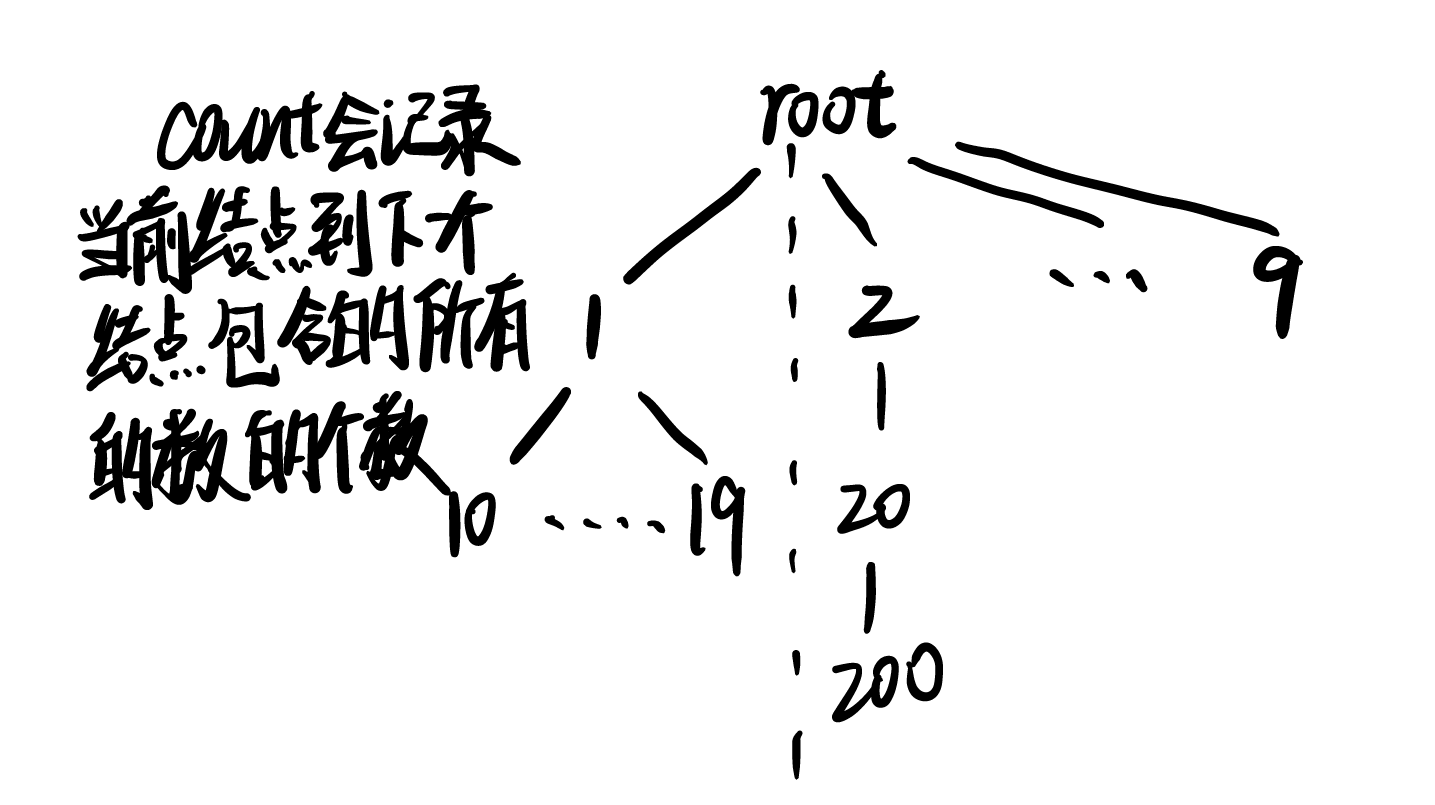 count会记录
当前结点到下个
结点包含的所有
的数的个数
root
1
2
...
9
10
....
19
20
200